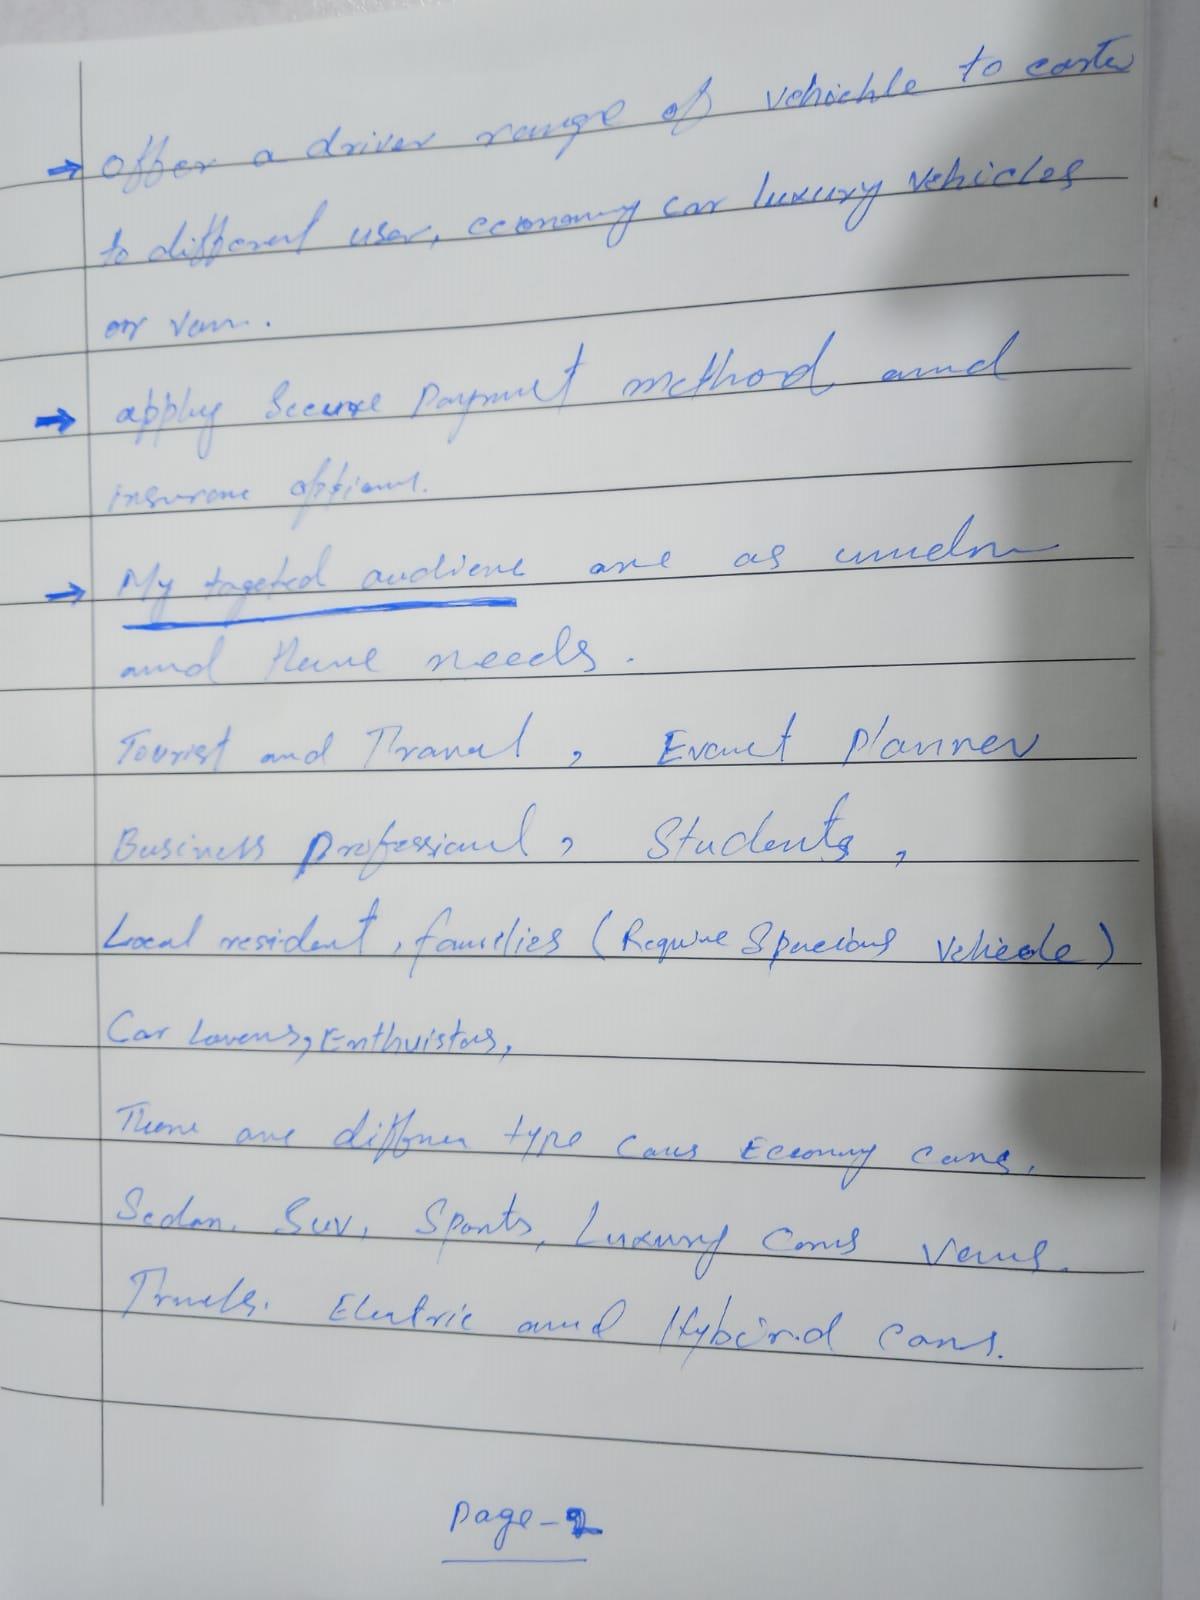 → Offer a driver range of vehichle to carter
to different user, economy car luxury vehicles
or van.
→ apply Secure Payment method and
insurance options.
→ My tageted audience are as under
and there needs.
Tourist and Travel, Event Planner
Business professional, Students,
Local resident, families (Require Spacious vehicle)
Car Lovers, Enthuistas,
There are differen type cars Economy cars,
Sedan, Suv, Sports, Luxury Cars Vans.
Trucks. Electric and Hybird cars.
Page-2